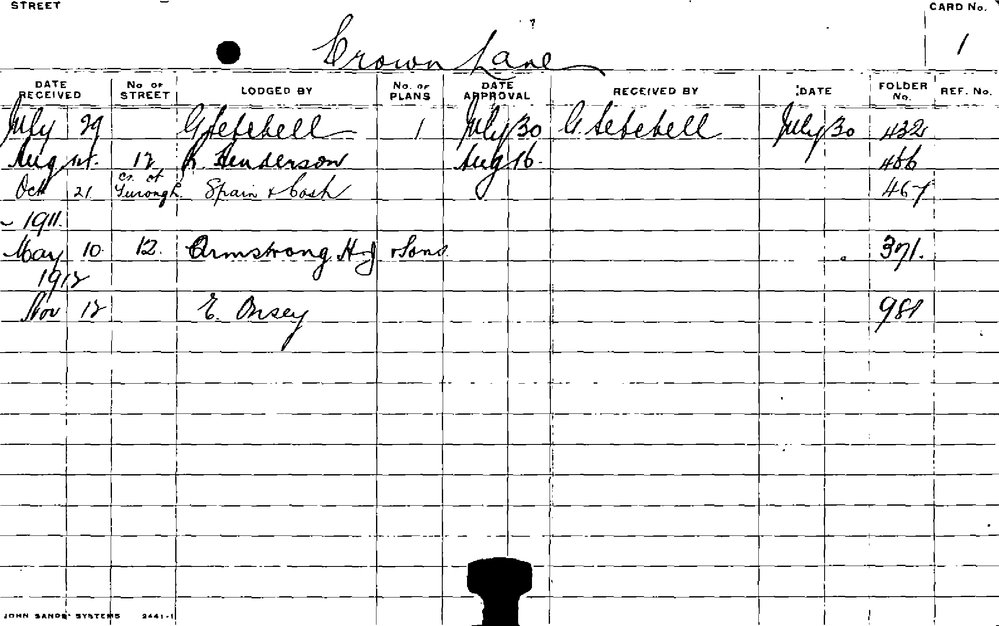 STREET
CARD No.
1
Crown Lane
DATE RECEIVED No OF STREET LODGED BY No. OF PLANS DATE APPROVAL RECEIVED BY DATE FOLDER No. REF. No.
July 29 G 1 July 30 G. July 30 432
Aug 12 Henderson Aug 16. 466
Oct 21 cr. of Spain & Cosh 467
1911.
May 10. 12. Armstrong H & Sons 371.
1912
Nov 12 E. Onsey 981
JOHN SANDS' SYSTEMS 2441-1